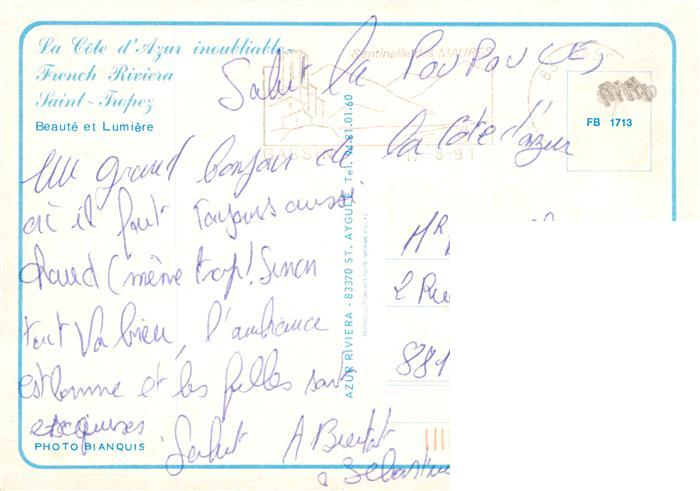 La Côte d'Azur inoubliable
French Riviera
Saint-Tropez
Beauté et Lumière
Sentinelle des MAURES
FB 1713
Salut la POUPOU(E)
Un grand bonjour de la Côte d'azur
où il fait toujours aussi
chaud (même trop! Sinon
tout va bien, l'ambiance
est bonne et les filles sont
exquises
Salut A Bientôt
PHOTO BIANQUIS
AZUR RIVIERA - 83370 ST. AYGULF Tel. 94.81.01.60
Mr
2 Rue
881